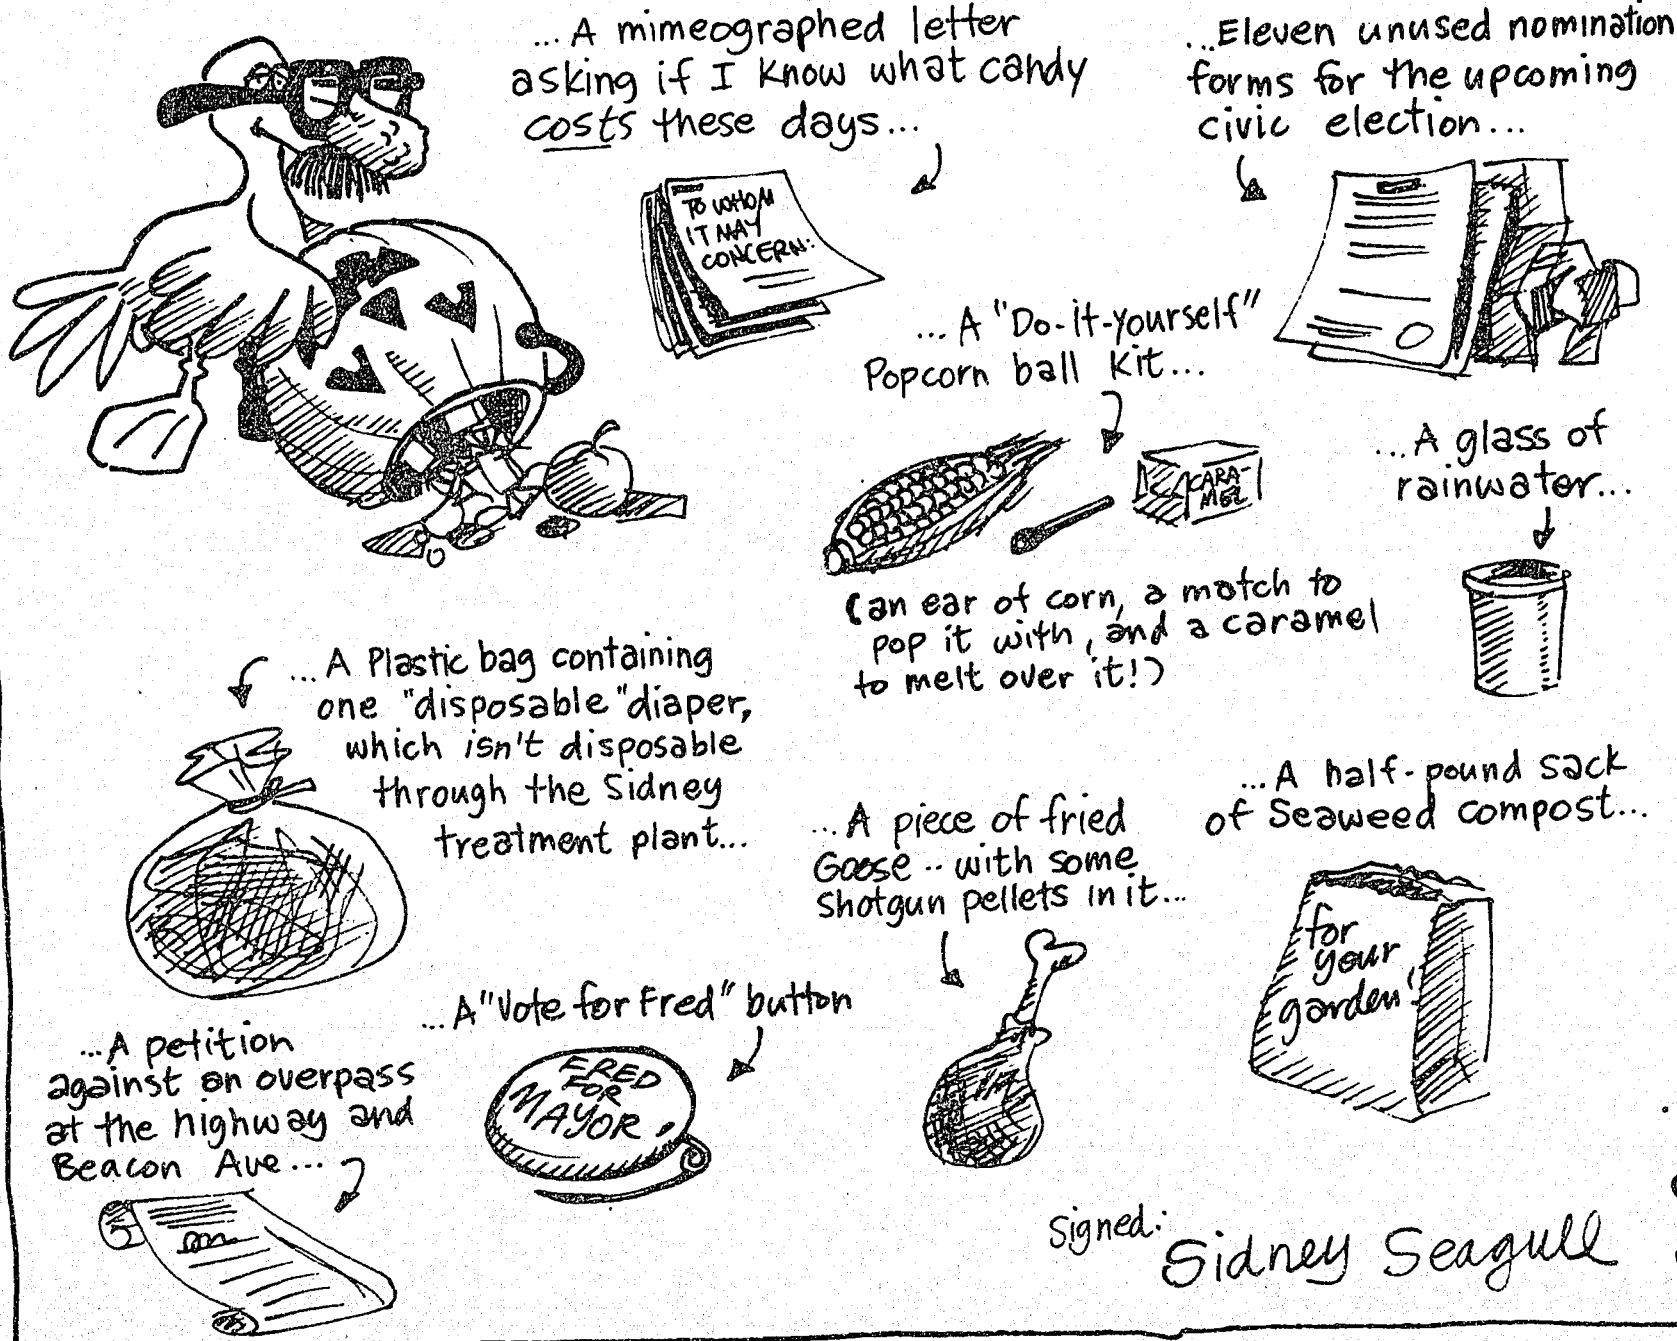 ...A mimeographed letter
asking if I know what candy
costs these days...
TO WHOM
IT MAY
CONCERN:
...Eleven unused nomination
forms for the upcoming
civic election...
...A "Do-it-yourself"
Popcorn ball Kit...
CARA-
MEL
(an ear of corn, a match to
pop it with, and a caramel
to melt over it!)
...A glass of
rainwater...
...A Plastic bag containing
one "disposable" diaper,
which isn't disposable
through the Sidney
treatment plant...
...A piece of fried
Goose.. with some
Shotgun pellets in it...
...A half-pound sack
of Seaweed compost...
for
your
garden!
...A "Vote for Fred" button
FRED
FOR
MAYOR.
...A petition
against an overpass
at the highway and
Beacon Ave...
Signed:
Sidney Seagull